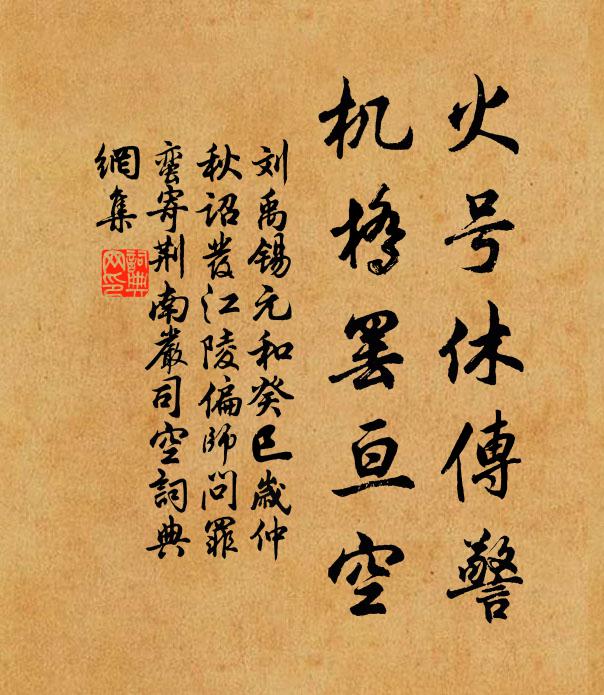 火号休傳警
机橋罢亘空
刘禹锡元和癸巳歳仲
秋詔发江陵偏師问罪
蛮寄荆南嚴司空詞典
網集
詞典網印